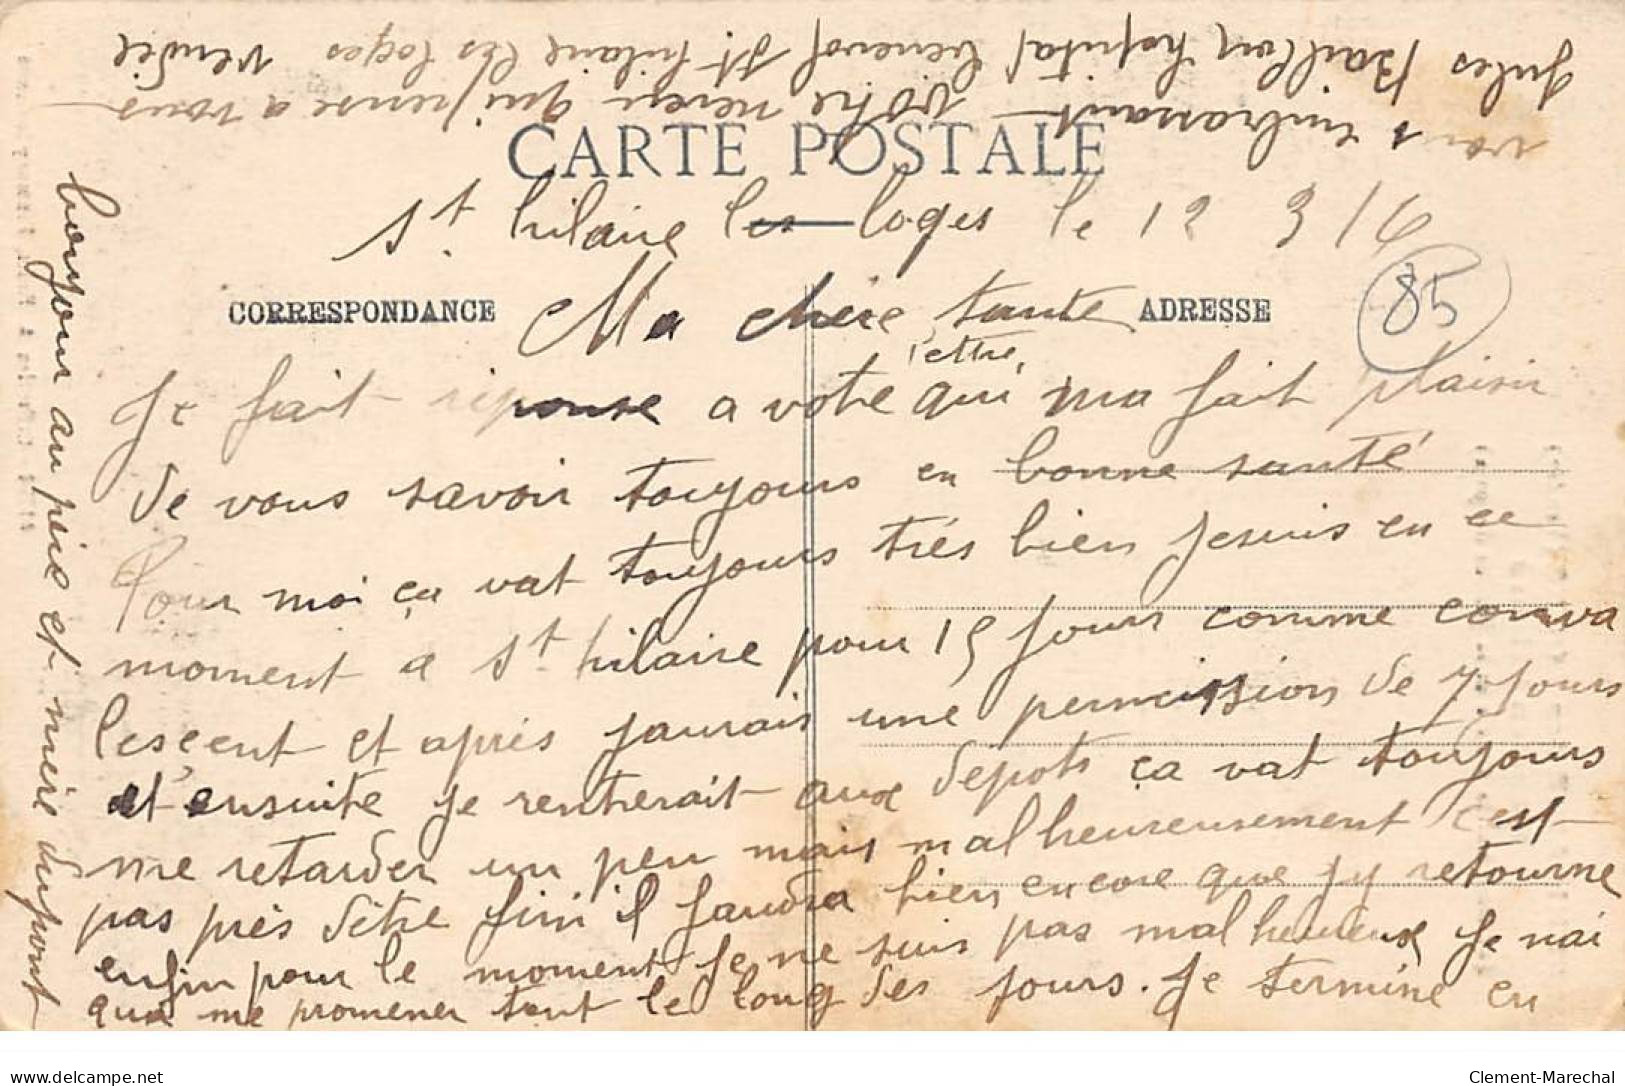 CARTE POSTALE
St hilaire les loges le 12 3 16
CORRESPONDANCE
ADRESSE
85
Ma chère tante
Je fait réponse a votre lettre qui ma fait plaisir
de vous savoir toujours en bonne santé
Pour moi ça vat toujours trés bien Jesuis en ce
moment a St hilaire pour 15 Jours comme conva
lescent et après Jaurais une permission de 7 Jours
et ensuite je rentrerait aux dépots ça vat toujours
me retarder un peu mais malheureusement c'est
pas près dêtre fini il faudra bien encore que Jy retourne
enfin pour le moment Je ne suis pas malheureux Je nai
qua me promener tout le long des jours. Je termine en
vous embrassant Votre neveu qui pense a vous
Jules Baillon hopital bénévol St hilaire les loges vendée
bonjour au père et mère dupont
delcampe.net
Clement-Marechal